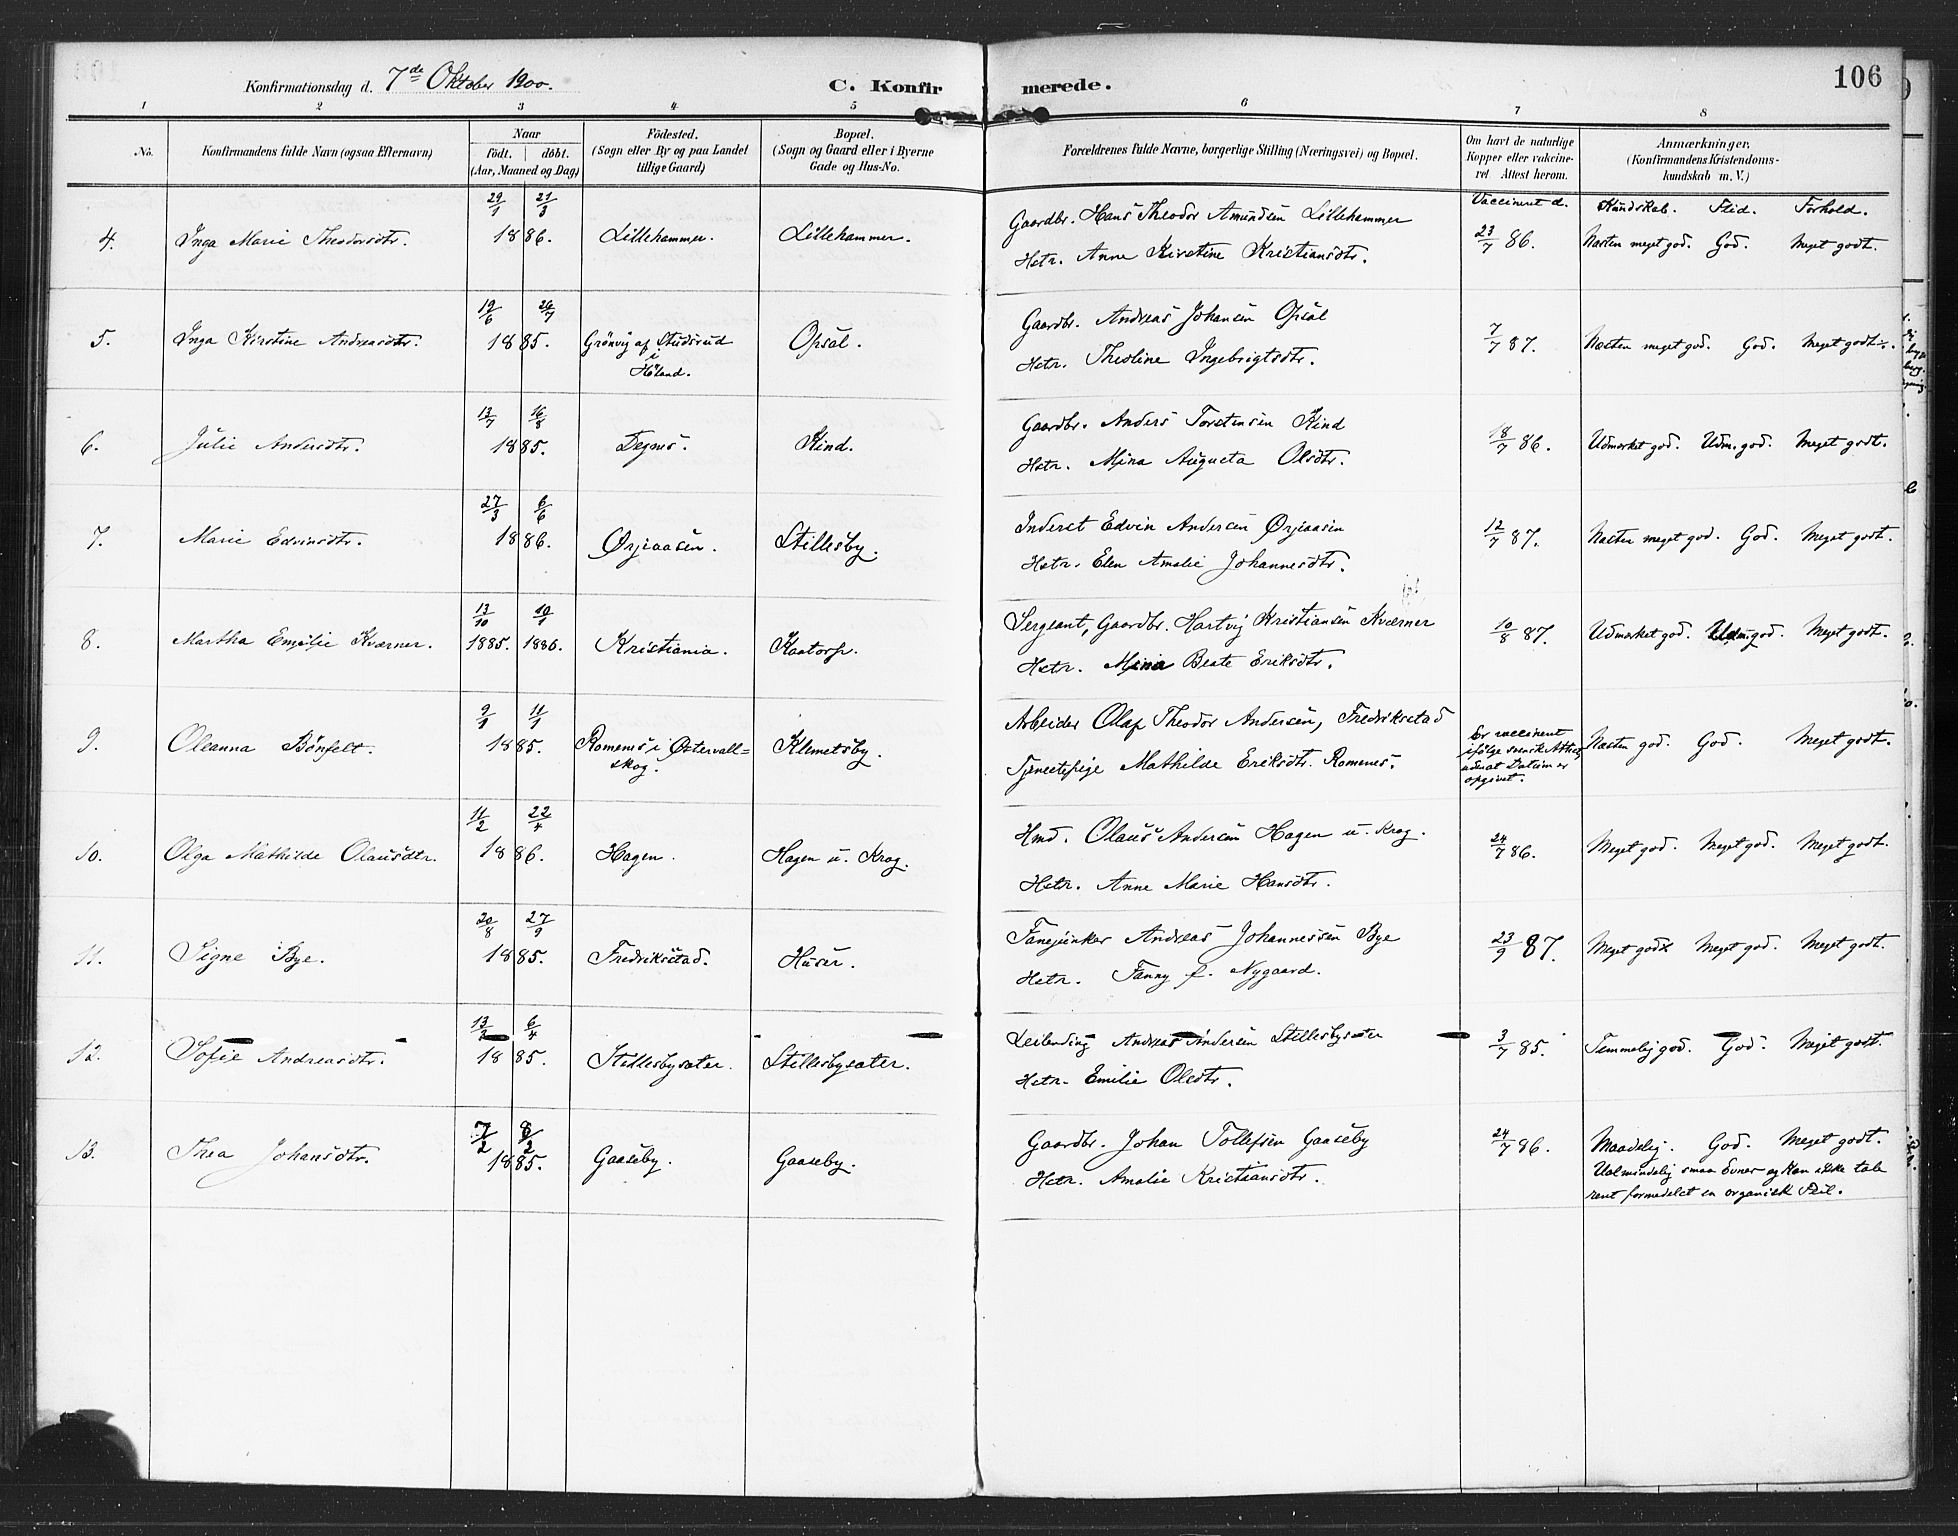 106
Konfirmationsdag d. 7de Oktober 1900.
C. Konfirmerede.
1 2 3 4 5 6 7 8
No.
Konfirmandens fulde Navn (ogsaa Efternavn)
Naar
födt. döbt.
(Aar, Maaned og Dag)
Födested.
(Sogn eller By og paa Landet
tillige Gaard)
Bopæl.
(Sogn og Gaard eller i Byerne
Gade og Hus-No.
Forældrenes fulde Navne, borgerlige Stilling (Næringsvei) og Bopæl.
Om havt de naturlige
Kopper eller vakcine-
ret Attest herom.
Anmærkninger.
(Konfirmandens Kristendoms-
kundskab m. V.)
Vaccineret d. Kundskab. Flid. Forhold.
4. Inga Marie Theodorsdtr. 29/1 21/3 1886. Lillehammer. Lillehammer.
Gaardbr. Hans Theodor Amundsen Lillehammer
Hstr. Anne Kirstine Kristiansdtr.
23/7 86. Næsten meget god. God. Meget godt.
5. Inga Kirstine Andreasdtr. 19/6 26/7 1885. Grönvig af Studsrud
i
Höland.
Opsal.
Gaardbr. Andreas Johansen Opsal
Hstr. Theoline Ingebrigtsdtr.
7/7 87. Næsten meget god. God. Meget godt.
6. Julie Andersdtr. 13/7 16/8 1885. Degnes. Kind.
Gaardbr. Anders Torstensen Kind
Hstr. Mina Augusta Olsdtr.
18/7 86. Udmærket god. Udm. god. Meget godt.
7. Marie Edvinsdtr. 27/3 6/6 1886. Ørjeaasen. Stillesby.
Inderst Edvin Andersen Ørjeaasen
Hstr. Elen Amalie Johannesdtr.
12/7 87. Næsten meget god. God. Meget godt.
8. Martha Emilie Kværner. 13/10 1885. 10/1 1886. Kristiania. Kaatorp.
Sergeant, Gaardbr. Hartvig Kristiansen Kværner
Hstr. Mina Beate Eriksdtr.
10/8 87. Udmærket god. Udm. god. Meget godt.
9. Oleanna Bönfelt. 9/1 11/1 1885. Romenes i Østervall-
skog.
Klemetsby.
Arbeider Olaf Theodor Andersen, Fredrikstad
Tjenestepige Mathilde Eriksdtr. Romenes.
Er vaccineret
ifölge svensk Attest,
uden at Datum er
opgivet.
Næsten god. God. Meget godt.
10. Olga Mathilde Olausdtr. 11/2 22/4 1886. Hagen. Hagen u. Krog.
Hmd. Olaus Andersen Hagen u. Krog.
Hstr. Anne Marie Hansdtr.
24/7 86. Meget god. Meget god. Meget godt.
11. Signe Bye. 20/8 27/9 1885. Fredrikstad. Huser.
Fanejunker Andreas Johannessen Bye
Hstr. Fanny f. Nygaard.
23/9 87. Meget god. Meget god. Meget godt.
12. Sofie Andreasdtr. 13/2 6/4 1885. Stillesbysæter. Stillesbysæter.
Leilending Andreas Andersen Stillesbysæter
Hstr. Emilie Olsdtr.
3/7 85. Temmelig god. God. Meget godt.
13. Thea Johansdtr. 7/2 8/2 1885. Gaaseby. Gaaseby.
Gaardbr. Johan Tollefsen Gaaseby
Hstr. Amalie Kristiansdtr.
24/7 86. Maadelig. God. Meget godt.
Ualmindelig smaa Evner og kan ikke tale
rent formedelst en organisk Feil.